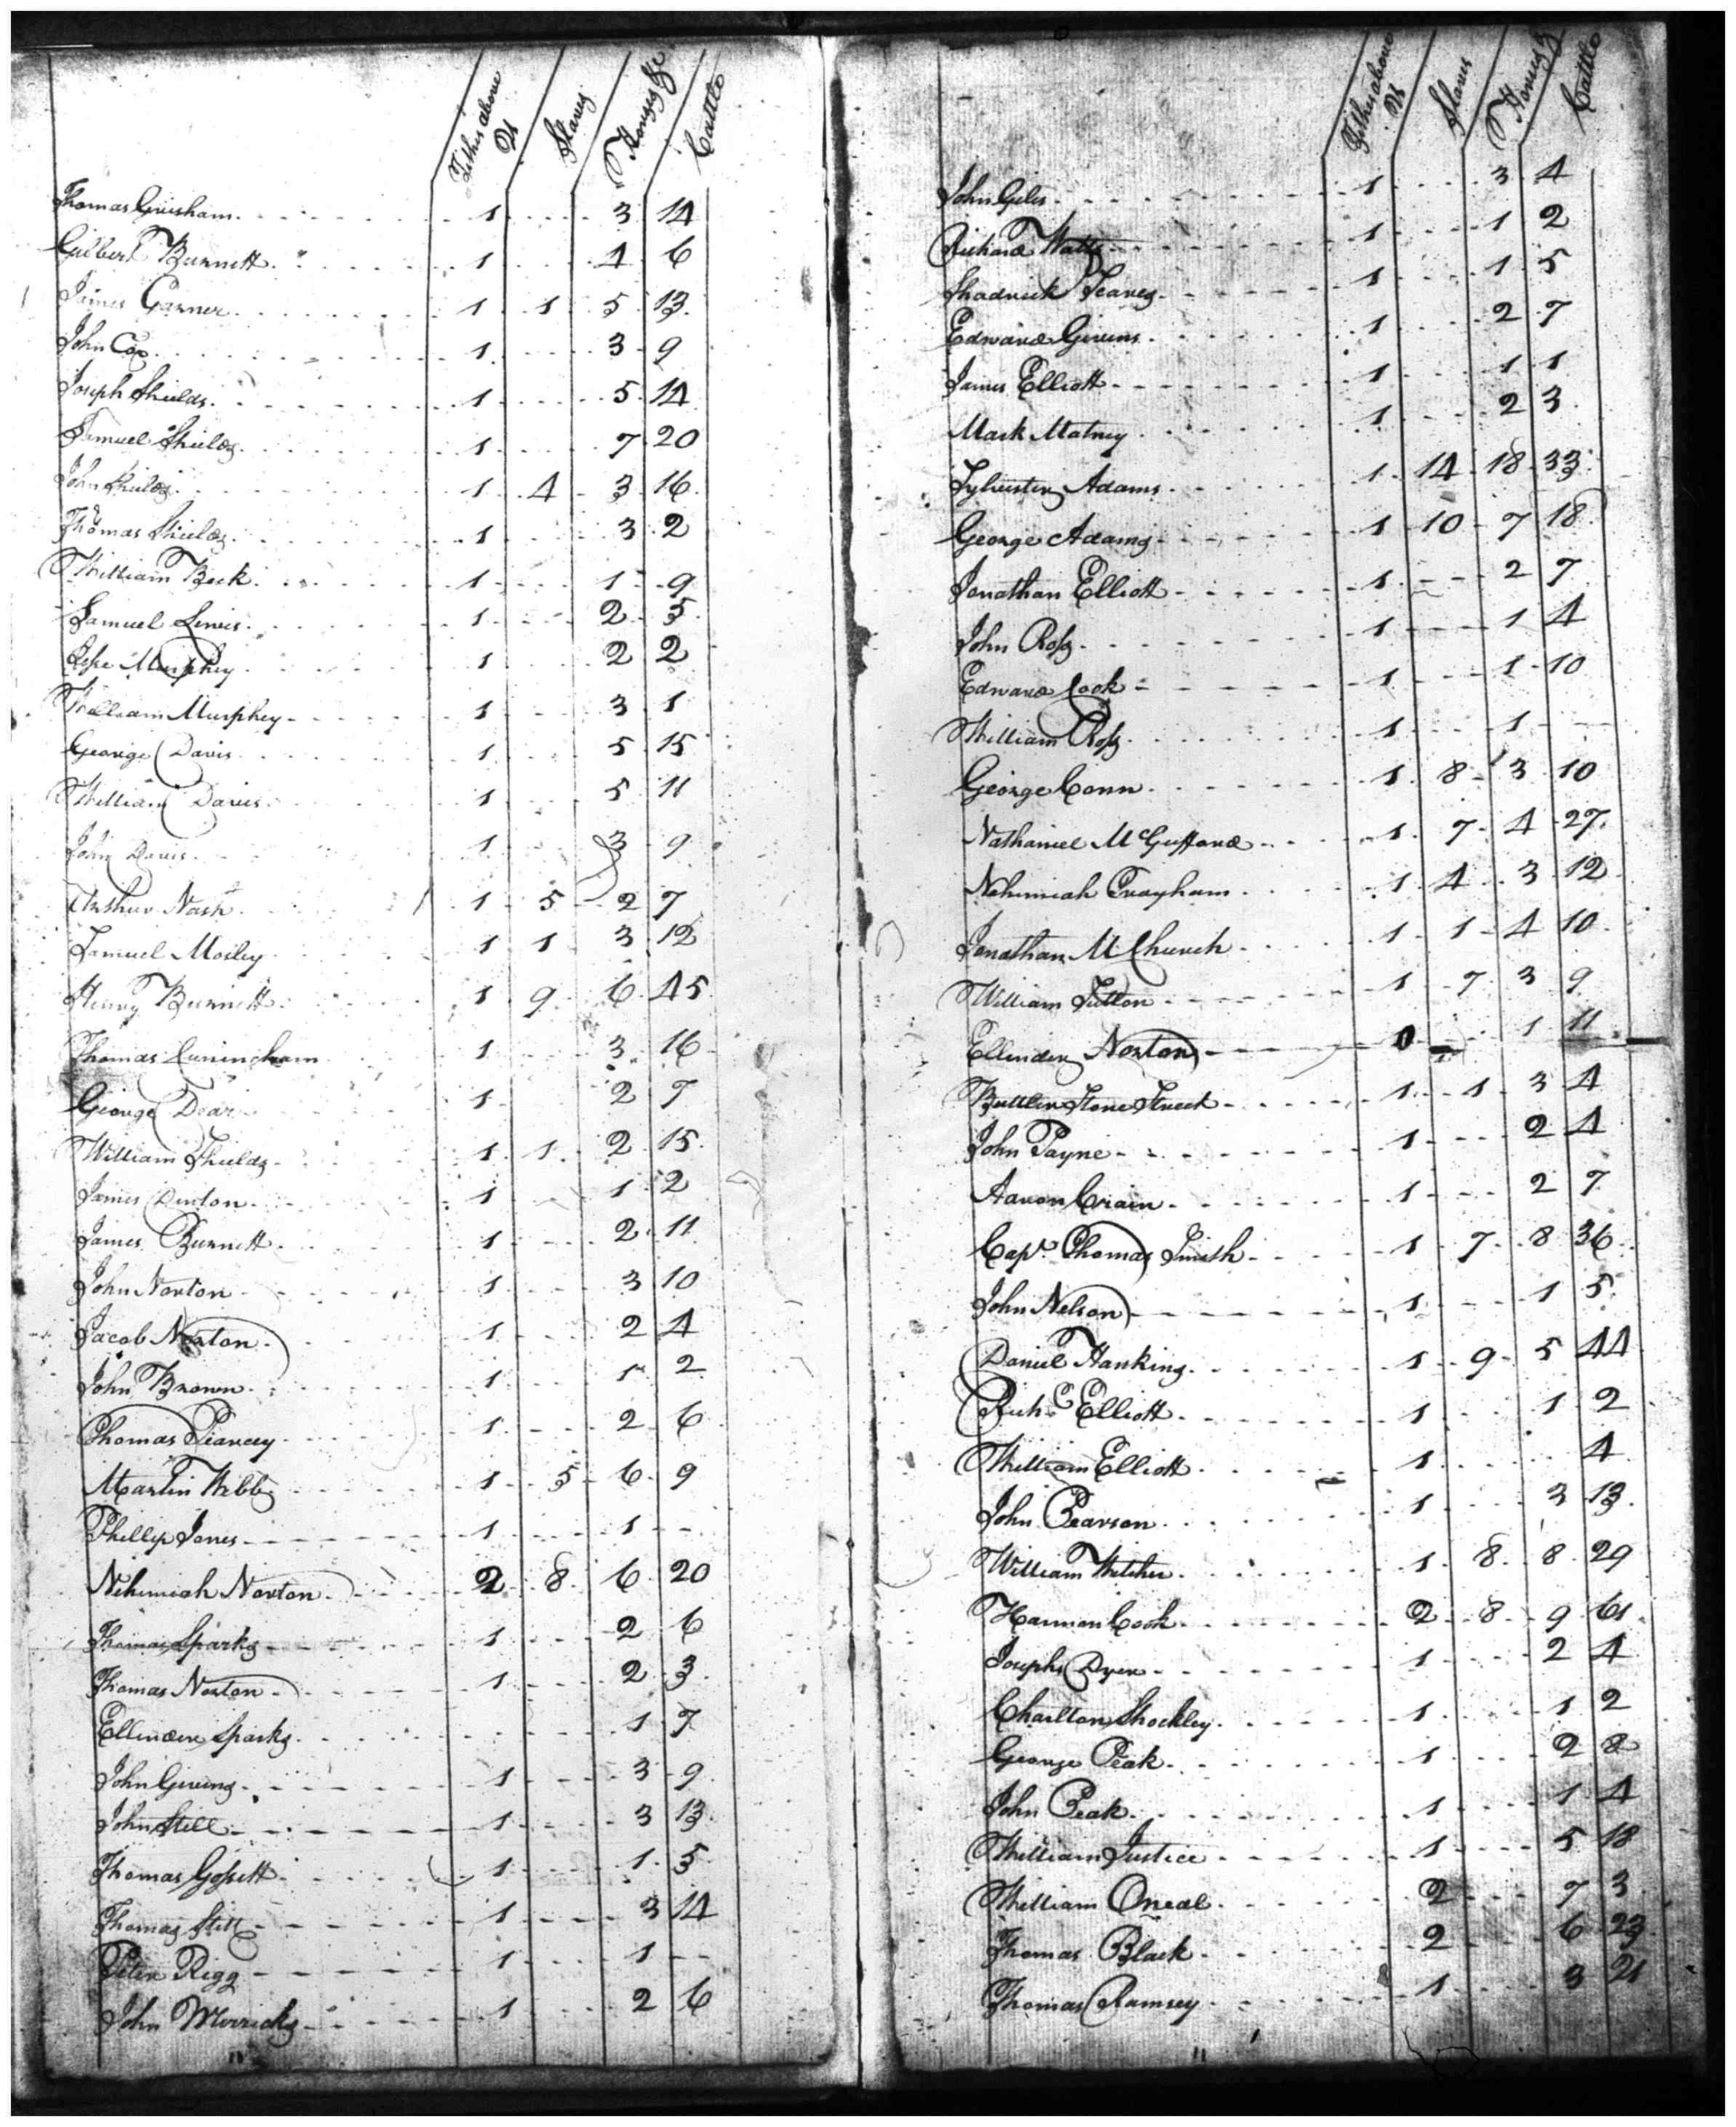 Tithes above 21 Slaves Horses &c Cattle
Thomas Grisham 1 3 14
Gilbert Burnett 1 4 6
James Garner 1 1 5 13
John Cox 1 3 9
Joseph Shields 1 5 14
Samuel Shields 1 7 20
John Shields 1 4 3 16
Thomas Shields 1 3 2
William Beck 1 1 9
Samuel Lewis 1 2 5
Jesse Murphey 1 2 2
William Murphey 1 3 1
George Davis 1 5 15
William Davis 1 5 11
John Davis 1 3 9
Arthur Nash 1 5 2 7
Samuel Mosley 1 1 3 12
Henry Burnett 1 9 6 45
Thomas Cunincham 1 3 16
George Dear 1 2 7
William Shields 1 1 2 15
James Denton 1 1 2
James Burnett 1 2 11
John Norton 1 3 10
Jacob Norton 1 2 4
John Brown 1 1 2
Thomas Piancey 1 2 6
Martin Webb 1 5 6 9
Phillip Jones 1 1
Nehimiah Norton 2 8 6 20
Thomas Sparks 1 2 6
Thomas Norton 1 2 3
Ellinder Sparks 1 7
John Givins 1 3 9
John Still 1 3 13
Thomas Gossett 1 1 5
Thomas Still 1 3 14
Peter Rigg 1 1
John Merricks 1 2 6
Tithes above 21 Slaves Horses &c Cattle
John Giles 1 3 4
Richard Watts 1 1 2
Shadrick 1 1 5
Edward Givins 1 2 7
James Elliott 1 1 1
Mark Matney 1 2 3
Sylvester Adams 1 14 18 33
George Adams 1 10 7 18
Jonathan Elliott 1 2 7
John Ross 1 1 4
Edward Cook 1 1 10
William Ross 1 1
George Conn 1 8 3 10
Nathaniel McGuffard 1 7 4 27
Nehimiah Crayham 1 4 3 12
Jonathan McChurch 1 1 4 10
William Tutton 1 7 3 9
Ellinder Norton 0 1 11
Buttler Stone Street 1 1 3 4
John Payne 1 2 4
Aaron Crain 1 2 7
Capt Thomas Smith 1 7 8 36
John Nelson 1 1 5
Daniel Hankins 1 9 5 44
Richd Elliott 1 1 2
William Elliott 1 4
John Pearson 1 3 13
William Whicher 1 8 8 29
Harmon Cook 2 8 9 61
Joseph Dyer 1 2 4
Charlton Shockley 1 1 2
George Peak 1 2 8
John Peak 1 1 4
William Justice 1 5 18
William Oneal 2 7 3
Thomas Black 2 6 23
Thomas Ramsey 1 3 21